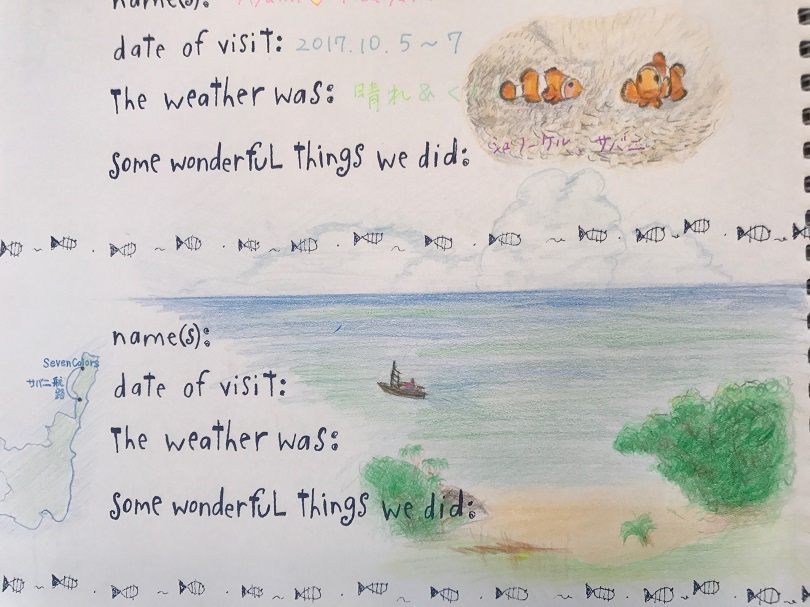 name(s):
date of visit: 2017.10.5～7
The weather was: 晴れ & く
some wonderful things we did:
シュノーケル、サバニ
name(s):
SevenColors
サバニ航路
date of visit:
The weather was:
some wonderful things we did: